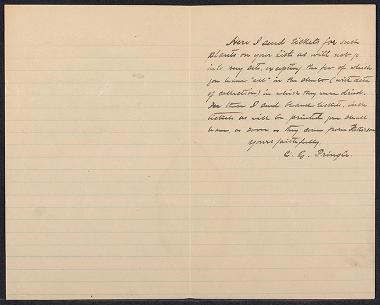 Here I send tickets for such
plants on your lists as will not go
into my sets, excepting the few of which
you have "all" in the
of collection) in which they were dried.
For them I send blank tickets, such
tickets as will be printed you shall
have, as soon as they come from
Yours faithfully,
C. G. Pringle.